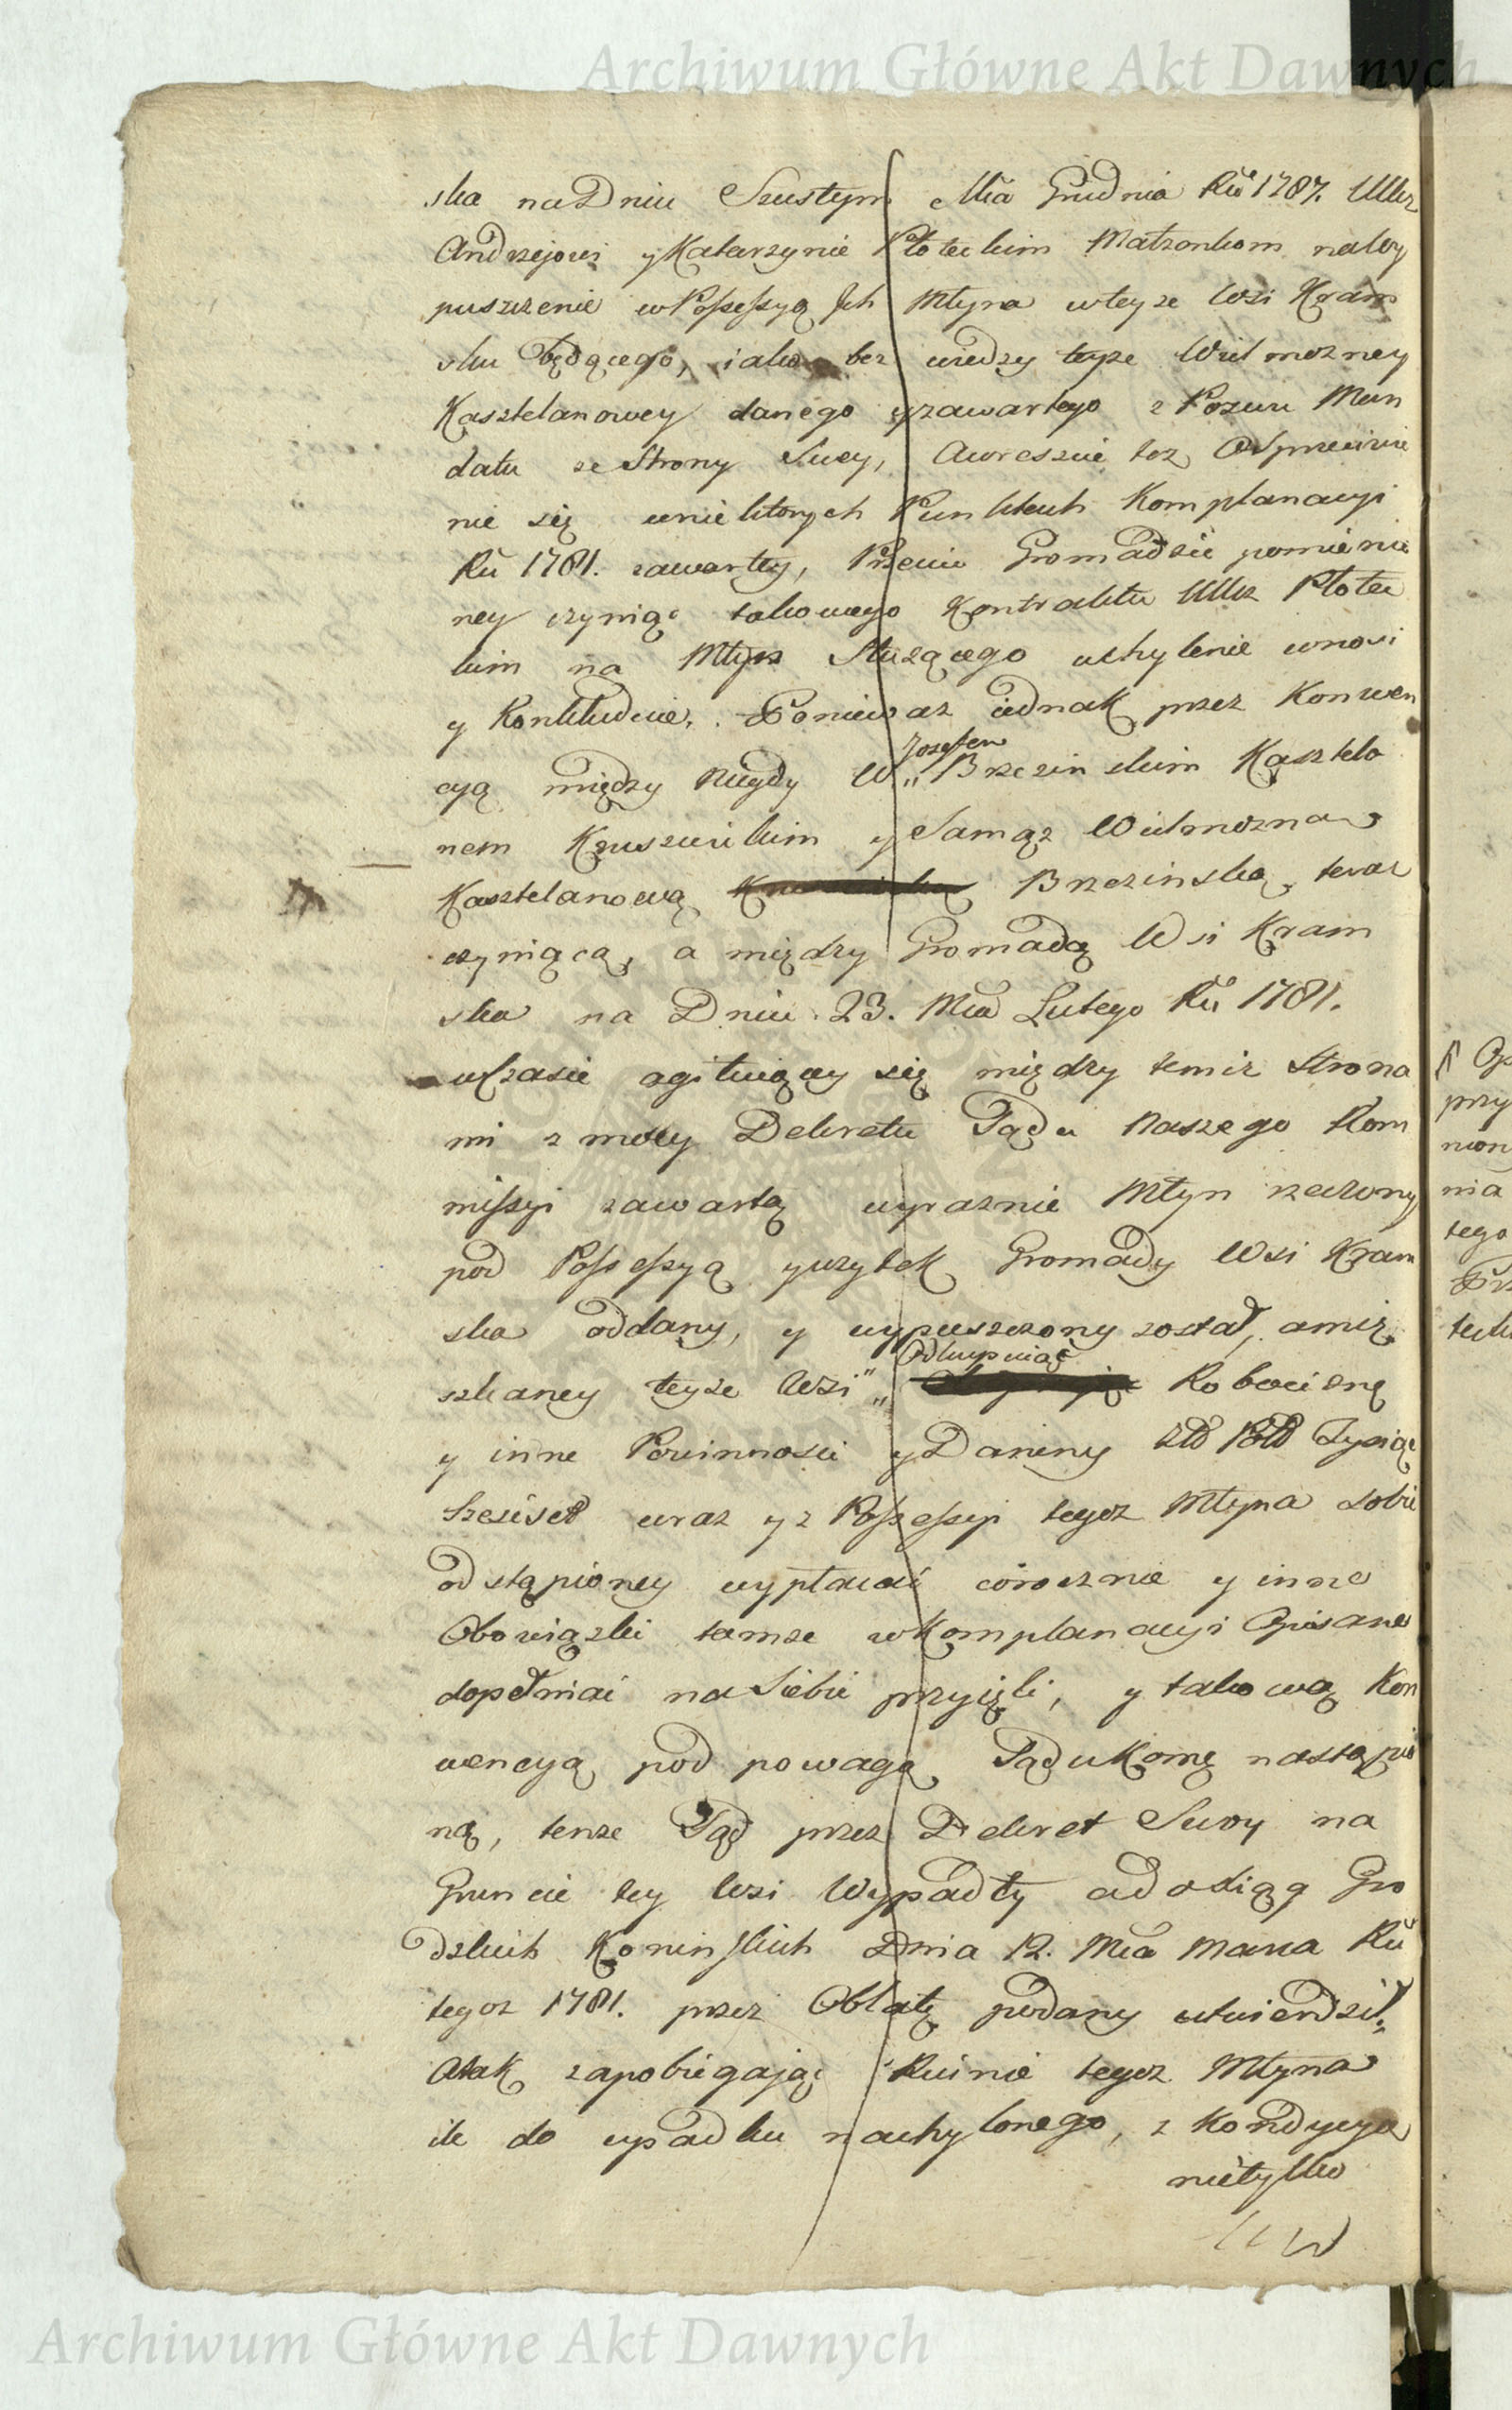 Archiwum Główne Akt Dawnych
ska na Dniu Szustym Mca Grudnia Ru 1787. UUr
Andrzejowi y Katarzynie Płoteckim Małżonkom na Wy
puszczenie w Possessyą Jch Młyna w teyże Wsi Kram
sku będącego, iako bez wiedzy teyże Wielmożney
Kasztelanowey danego y zawartego z Pozwu Man
datu ze Strony Swey, a wreszcie też
nie się w niektorych Punktach Komplanacyi
Ru 1781. zawartey, Przeciw Gromadzie pomienio
ney czyniąc takowego Kontraktu UUr Płotec
kim na Młyn Służącego uchylenie wnosi
y Konkluduie. Ponieważ iednak przez Konwen
cyą między niegdy W. „ Brzezinskim Kasztela
Jozefem
nem Kruszwickim y Samąż Wielmożną
Kasztelanową Brzezinską, teraz
czyniącą, a między Gromadą Wsi Kram
ska na Dniu 23. Mca Lutego Ru 1781.
w Czasie agituiącey się między temiż Strona
mi z mocy Dekretu Sądu Naszego Kom
missyi zawartą wyraznie Młyn rzeczony
pod Possessyą y użytek Gromady Wsi Kram
ska oddany, y wypuszczony został, a mie
szkancy teyże Wsi „ Robociznę
Odkupuiąc
y inne Powinności y Daniny Zło Pol Tysiąc
Sześćset wraz y z Possessyi tegoż Młyna sobie
odstąpioney wypłacać corocznie y inne
Obowiązki tamże w Komplanacyi Opisane
dopełniać na Siebie przyięli, y takową Kon
wencyą pod powagą Sądu Komę nastąpio
ną, tenże Sąd przez Dekret Swoy na
Gruncie tey Wsi Wypadły a do Xiąg Gro
dzkich Koninskich Dnia 12. Mca Marca Ru
tegoż 1781. przez Oblatę podany utwierdził,
a tak zapobiegaiąc Ruinie tegoż Młyna
ile do upadku nachylonego, z Kondycyą
nietylko
Op
przy
mon
nia
tego
Archiwum Główne Akt Dawnych